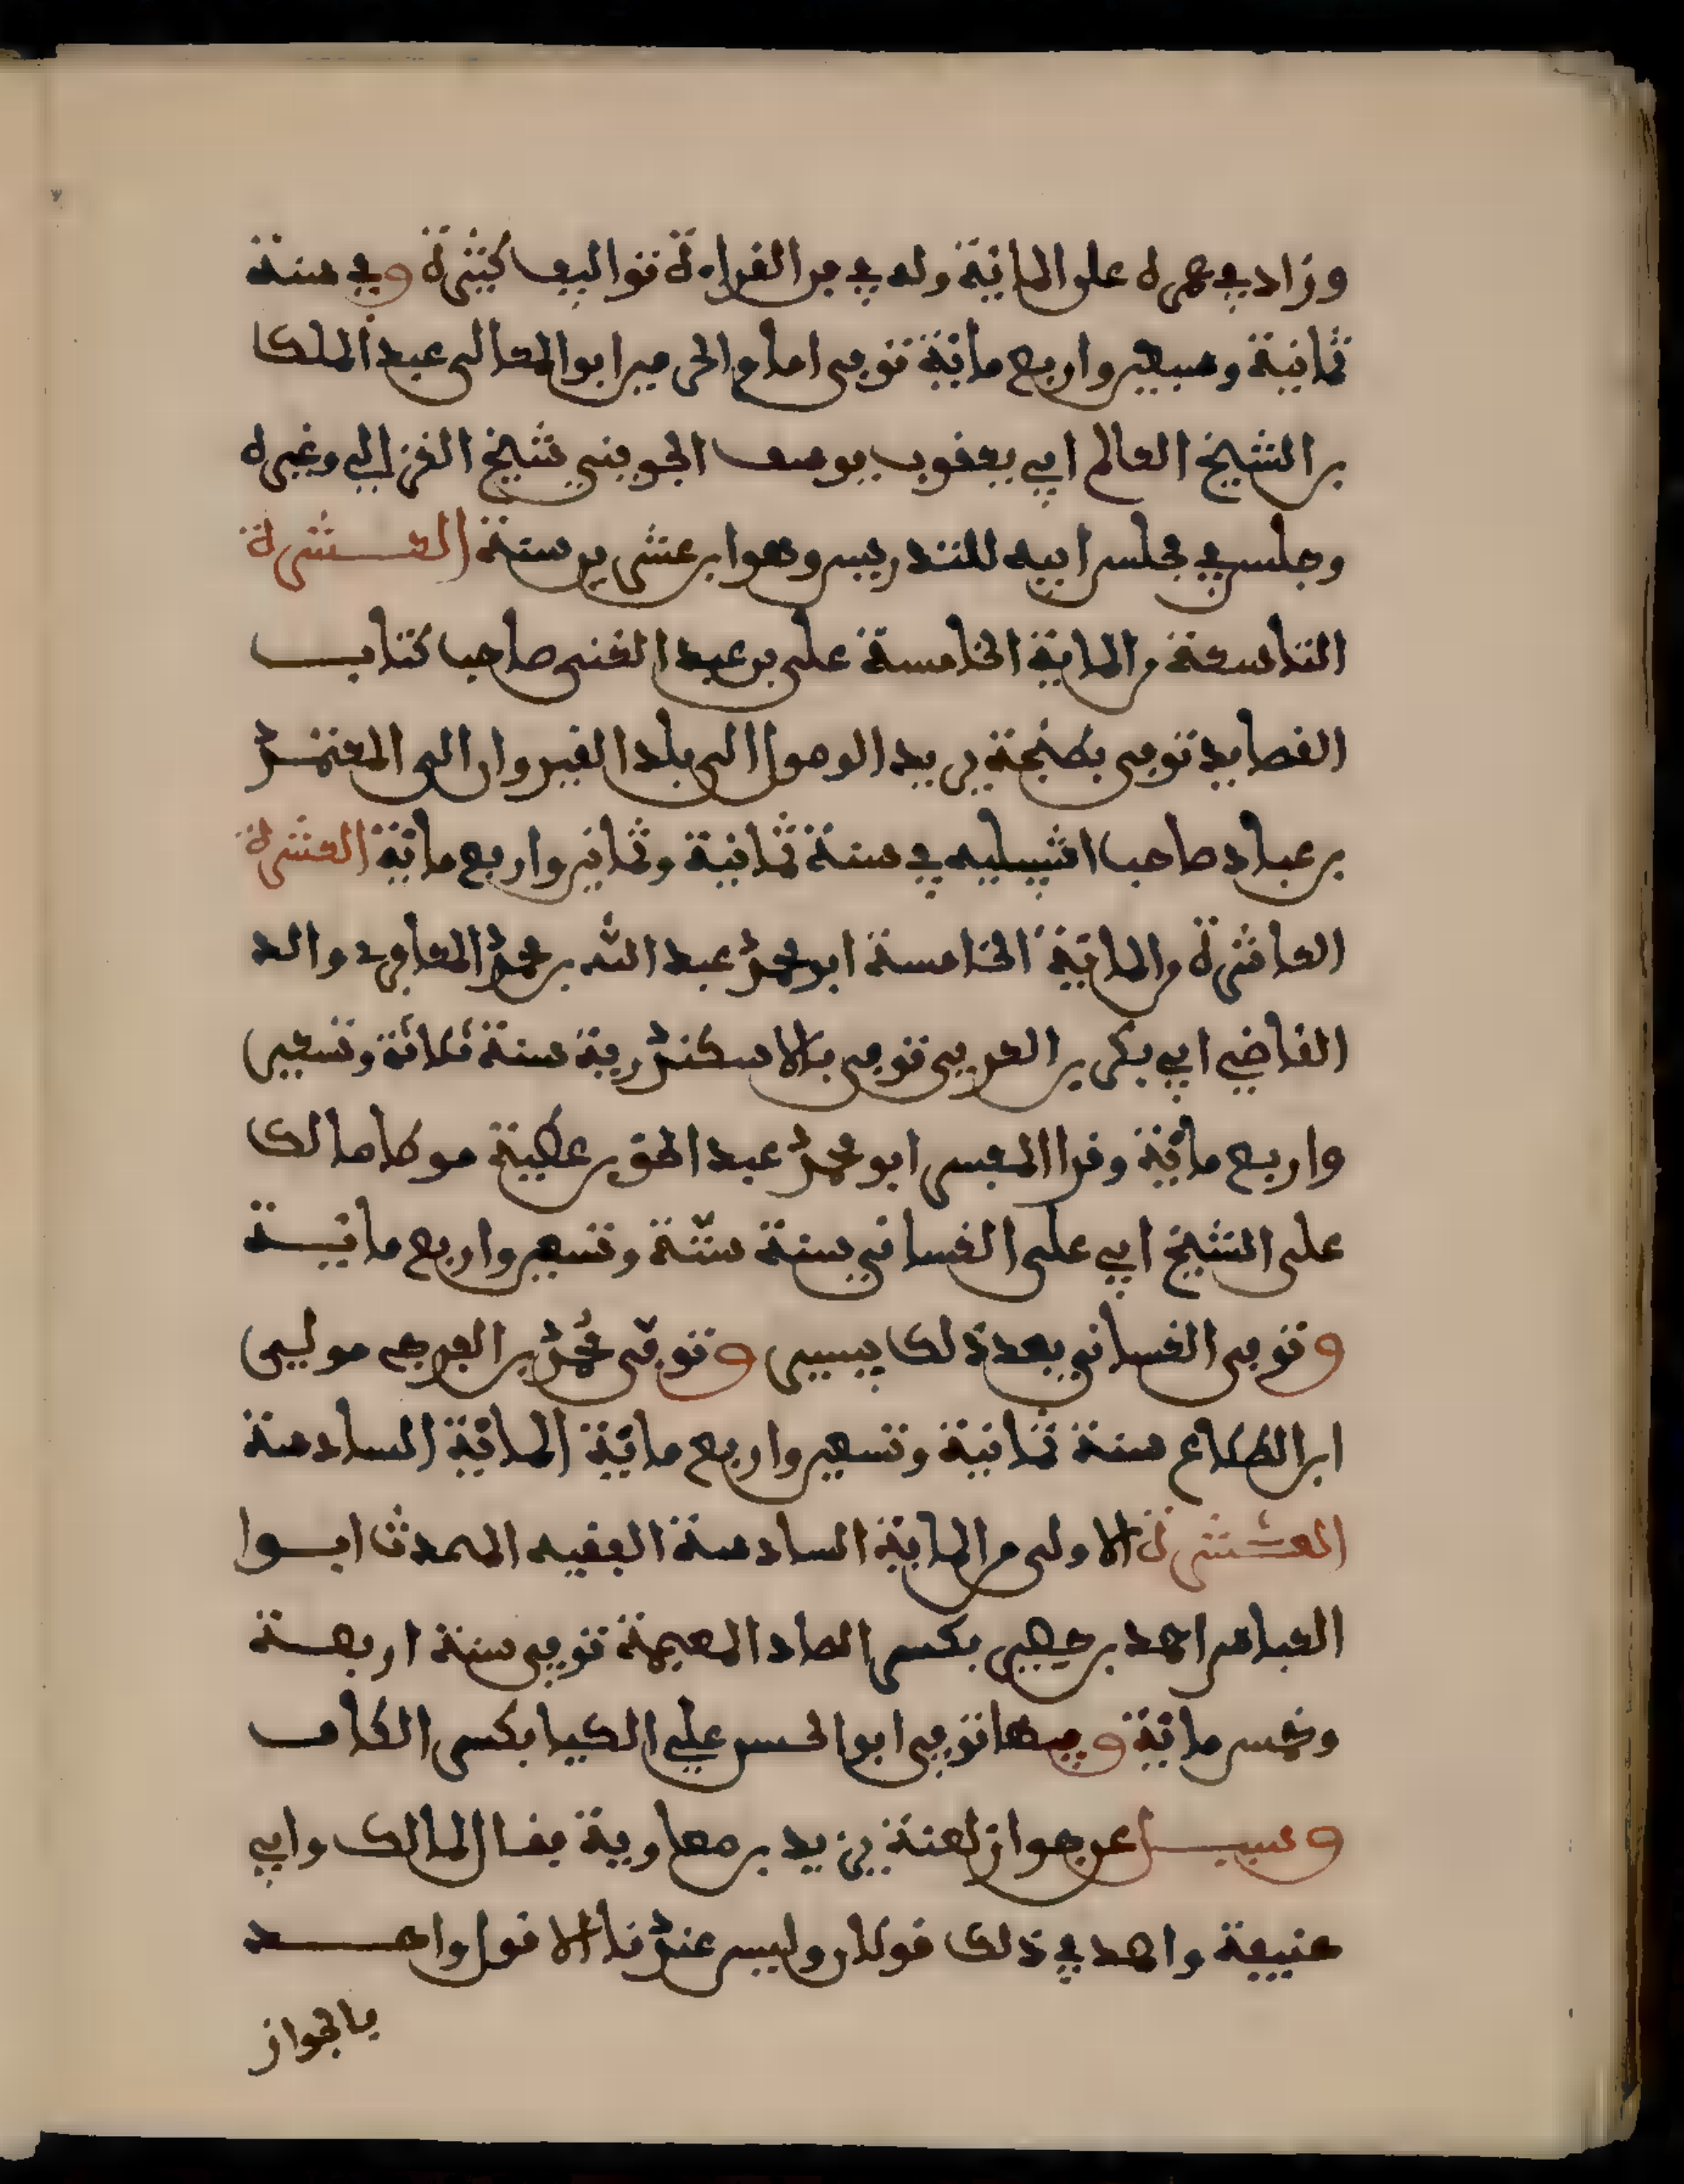 وزاد في عمره على الماية وله في فن القراءة تواليف كثيرة وفي سنة
ثمانية وسبعين واربع ماية توفي امام الحرمين ابو المعالي عبد الملك
بن الشيخ العالم ابي يعقوب يوسف الجويني شيخ الغزالي وغيره
وجلس في مجلس ابيه للتدريس وهو ابن عشرين سنة العشرة
التاسعة من الماية الخامسة علي بن عبد الغني صاحب كتاب
القصايد توفي بطنجة يريد الوصول الى بلد القيروان الى المعتمد
بن عباد صاحب اشبيليه في سنة ثمانية وثمانين واربع ماية العشرة
العاشرة من الماية الخامسة ابو محمد عبد الله بن محمد المعافري والد
القاضي ابي بكر بن العربي توفي بالاسكندرية سنة ثلاثة وتسعين
واربع ماية وقرا المفسر ابو محمد عبد الحق بن عطية موطا مالك
على الشيخ ابي علي الغساني سنة ستة وتسعين واربع ماية
وتوفي الغساني بعد ذلك بيسير وتوفي محمد بن الفرج مولى
ابن الطلاع سنة ثمانية وتسعين واربع ماية الماية السادسة
العشرة الاولى من الماية السادسة الفقيه المحدث ابوا
العباس احمد بن خضر بكسر الضاد المعجمة توفي سنة اربعة
وخمس ماية وفيها توفي ابو الحسن علي الكيا بكسر الكاف
وسيل عن جواز لعنة يزيد بن معاوية فقال لمالك وابي
حنيفة واحمد في ذلك قولان وليس عندنا الا قول واحد
بالجواز